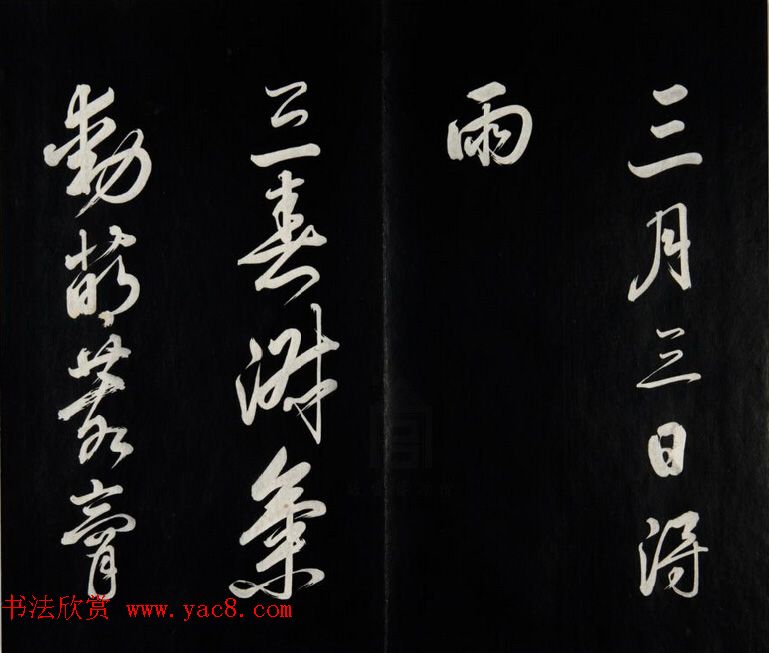 三月三日得
雨
三春淑氣
動萌膏
书法欣赏 www.yac8.com